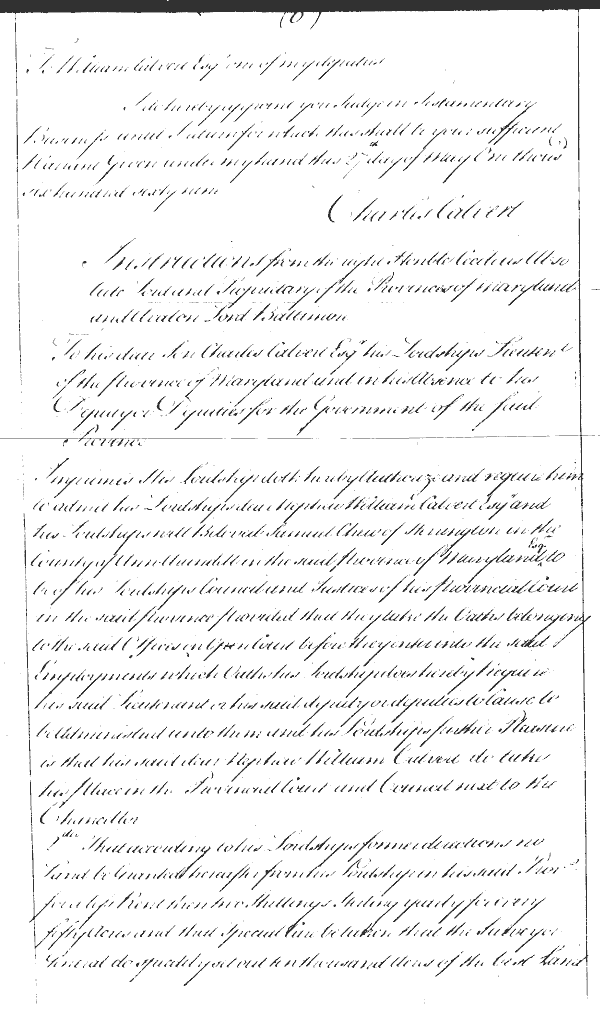 (6)
To William Calvert Esqr one of my deputies
I do hereby appoint you Judge in Testamentary
Business until I return for which this shall be your sufficient
Warrant Given under my hand this 27th day of May One thous
six hundred sixty nine
Charles Calvert
Instructions from the right Honble Cecilius Abso
lute Lord and Proprietary of the Provinces of Maryland
and Avalon Lord Baltimore
To his dear Son Charles Calvert Esqr his Lordships Lieutent
of the Province of Maryland and in his Absence to his
Deputy or Deputies for the Government of the said
Province
Imprimis His Lordship doth hereby Authorize and require him
to admit his Lordships dear Nephew William Calvert Esqr and
his Lordships well Beloved Samuel Chew of Herrington in the
County of Ann Arundell in the said Province of Maryland Esqr to
be of his Lordships Council and Justices of his Provincial Court
in the said Province Provided that they take the Oaths belonging
to the said Offices in Open Court before they enter into the said
Employments which Oaths his Lordship does hereby Require
his said Lieutenant or his said deputy or deputies to Cause to
be Administred unto them and his Lordships further Pleasure
is that his said dear Nephew William Calvert do take
his Place in the Provincial Court and Council next to the
Chancellor
2dly That according to his Lordships former directions no
Land be Granted hereafter from his Lordship in his said Provce
for a less Rent then two Shillings Sterling yearly for every
fifty Acres and that Special Care be taken that the Surveyor
General do speedily set out ten thousand Acres of the best Land